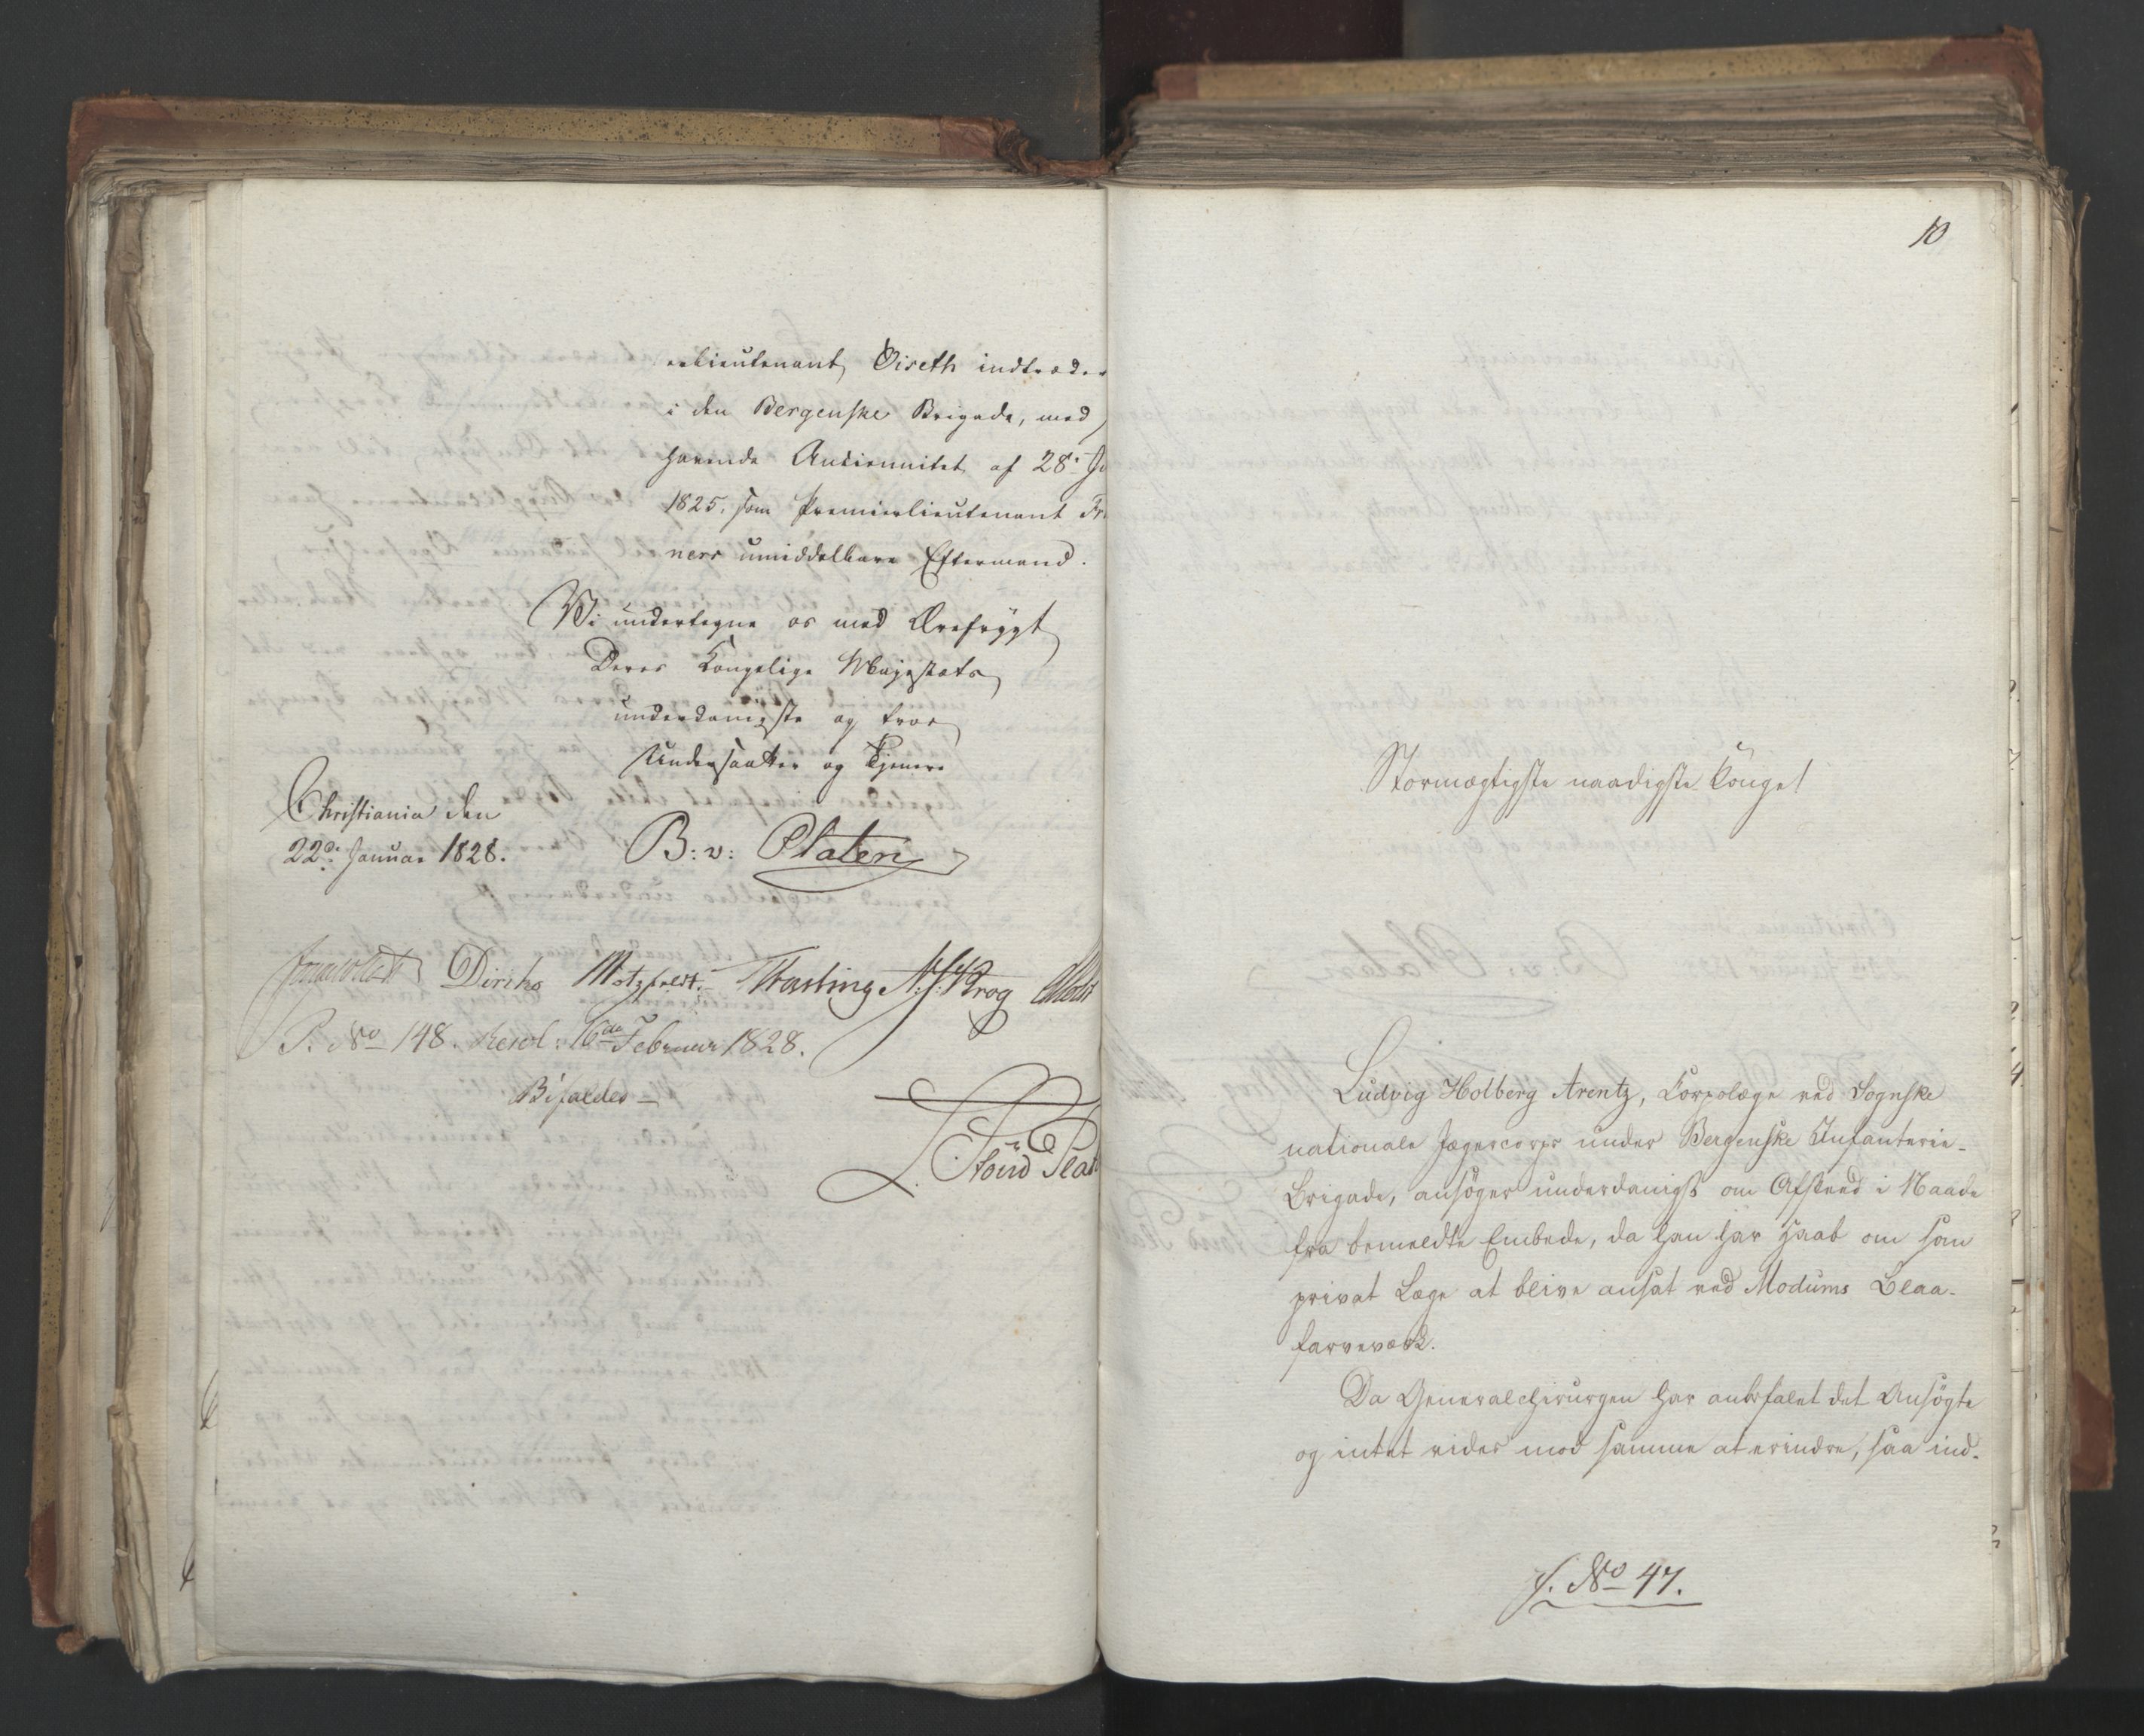 erlieutenant Öiseth indtræder
i den Bergenske Brigade, med
havende Anciennitet af 28de
1825, som Premierlieutenant
ners umiddelbare Eftermand.
Vi undertegne os med Ærefrygt
Deres Kongelige Majestæts
underdanigste og troe
Undersaatter og Tjenere
Christiania den
22de Januar 1828.
B: v: Platen
Diriks Motzfeldt. Fasting Krog
P. No 148. Resol: 16de Februar 1828.
Bifaldes —
10
Stormægtigste naadigste Konge!
Ludvig Holberg Arentz, Corpslæge ved Sognske
nationale Jægercorps under Bergenske Infanterie-
Brigade, ansöger underdanigst om Afskeed i Naade
fra bemeldte Embede, da han har Haab om som
privat Læge at blive ansat ved Modums Blaa-
farveværk.
Da Generalchirurgen har anbefalet det Ansögte
og intet vides mod samme at erindre, saa ind-
J. No 47.